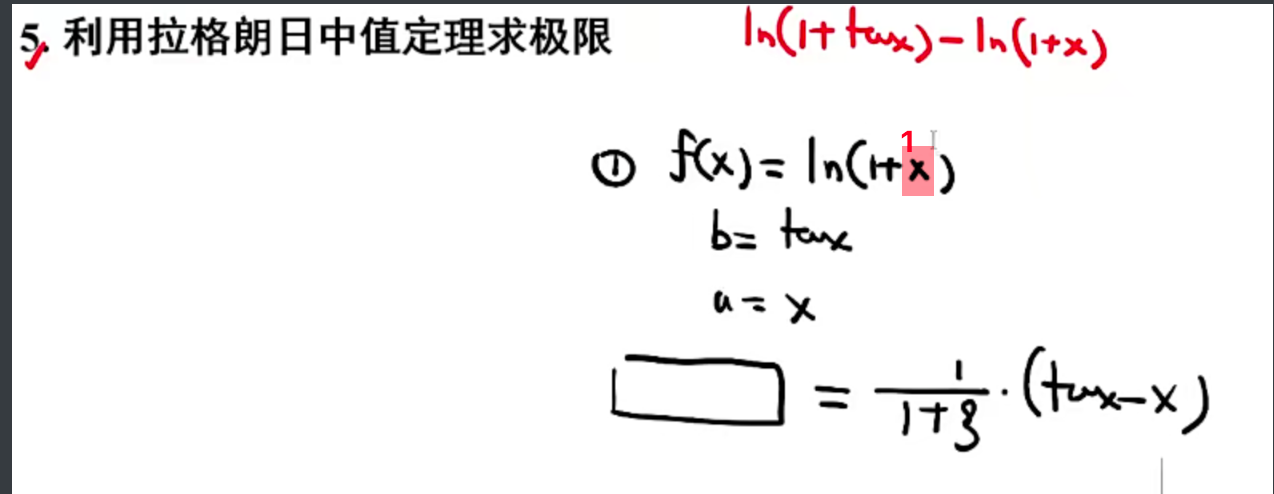 5. 利用拉格朗日中值定理求极限 ln(1+tanx)-ln(1+x)
1
① f(x)=ln(1+x)
b= tanx
a= x
= 1/(1+ξ)·(tanx-x)